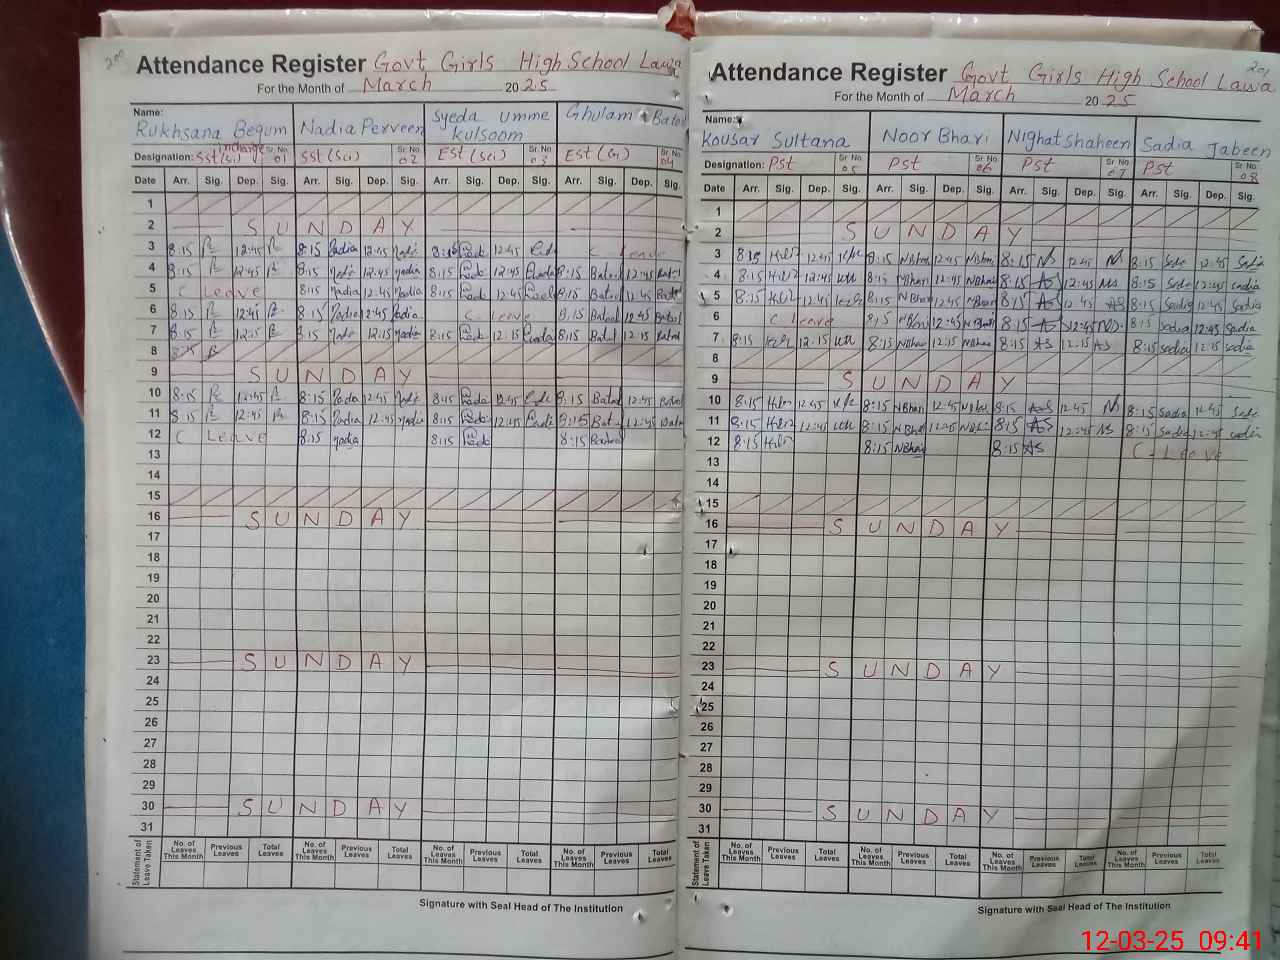 200
Attendance Register Govt Girls High School Lawa
For the Month of March 2025
Name:
Rukhsana Begum Nadia Perveen Syeda Umme Kulsoom Ghulam Batool
Designation: SST (Sci) Incharge Sr. No 01 SST (Sci) Sr. No 02 EST (Sci) Sr. No 03 EST (G) Sr. No 04
Date Arr. Sig. Dep. Sig. Arr. Sig. Dep. Sig. Arr. Sig. Dep. Sig. Arr. Sig. Dep. Sig.
1
2 SUNDAY
3 8:15 12:45 8:15 Nadia 12:45 Nadia 8:15 12:45 C Leave
4 8:15 12:45 8:15 Nadia 12:45 Nadia 8:15 12:45 8:15 Batool 12:45 Batool
5 C Leave 8:15 Nadia 12:45 Nadia 8:15 12:45 8:15 Batool 12:45 Batool
6 8:15 12:45 8:15 Nadia 12:45 Nadia C Leave 8:15 Batool 12:45 Batool
7 8:15 12:15 8:15 Nadia 12:15 Nadia 8:15 12:15 8:15 Batool 12:15 Batool
8 8:15
9 SUNDAY
10 8:15 12:45 8:15 Nadia 12:45 Nadia 8:15 12:45 8:15 Batool 12:45 Batool
11 8:15 12:45 8:15 Nadia 12:45 Nadia 8:15 12:45 8:15 Batool 12:45 Batool
12 C Leave 8:15 Nadia 8:15 8:15 Batool
13
14
15
16 SUNDAY
17
18
19
20
21
22
23 SUNDAY
24
25
26
27
28
29
30 SUNDAY
31
Statement of Leave Taken No. of Leaves This Month Previous Leaves Total Leaves No. of Leaves This Month Previous Leaves Total Leaves No. of Leaves This Month Previous Leaves Total Leaves No. of Leaves This Month Previous Leaves Total Leaves
Signature with Seal Head of The Institution
201
Attendance Register Govt Girls High School Lawa
For the Month of March 2025
Name:
Kousar Sultana Noor Bhari Nighat Shaheen Sadia Jabeen
Designation: PST Sr. No 05 PST Sr. No 06 PST Sr. No 07 PST Sr. No 08
Date Arr. Sig. Dep. Sig. Arr. Sig. Dep. Sig. Arr. Sig. Dep. Sig. Arr. Sig. Dep. Sig.
1
2 SUNDAY
3 8:15 12:45 8:15 NBhari 12:45 NBhari 8:15 NS 12:45 NS 8:15 Sadia 12:45 Sadia
4 8:15 12:45 8:15 NBhari 12:45 NBhari 8:15 NS 12:45 NS 8:15 Sadia 12:45 Sadia
5 8:15 12:45 8:15 NBhari 12:45 NBhari 8:15 NS 12:45 NS 8:15 Sadia 12:45 Sadia
6 C Leave 8:15 NBhari 12:45 NBhari 8:15 NS 12:45 NS 8:15 Sadia 12:45 Sadia
7 8:15 12:15 8:15 NBhari 12:15 NBhari 8:15 NS 12:15 NS 8:15 Sadia 12:15 Sadia
8
9 SUNDAY
10 8:15 12:45 8:15 NBhari 12:45 NBhari 8:15 NS 12:45 NS 8:15 Sadia 12:45 Sadia
11 8:15 12:45 8:15 NBhari 12:45 NBhari 8:15 NS 12:45 NS 8:15 Sadia 12:45 Sadia
12 8:15 8:15 NBhari 8:15 NS C-Leave
13
14
15
16 SUNDAY
17
18
19
20
21
22
23 SUNDAY
24
25
26
27
28
29
30 SUNDAY
31
Statement of Leave Taken No. of Leaves This Month Previous Leaves Total Leaves No. of Leaves This Month Previous Leaves Total Leaves No. of Leaves This Month Previous Leaves Total Leaves No. of Leaves This Month Previous Leaves Total Leaves
Signature with Seal Head of The Institution
12-03-25 09:41